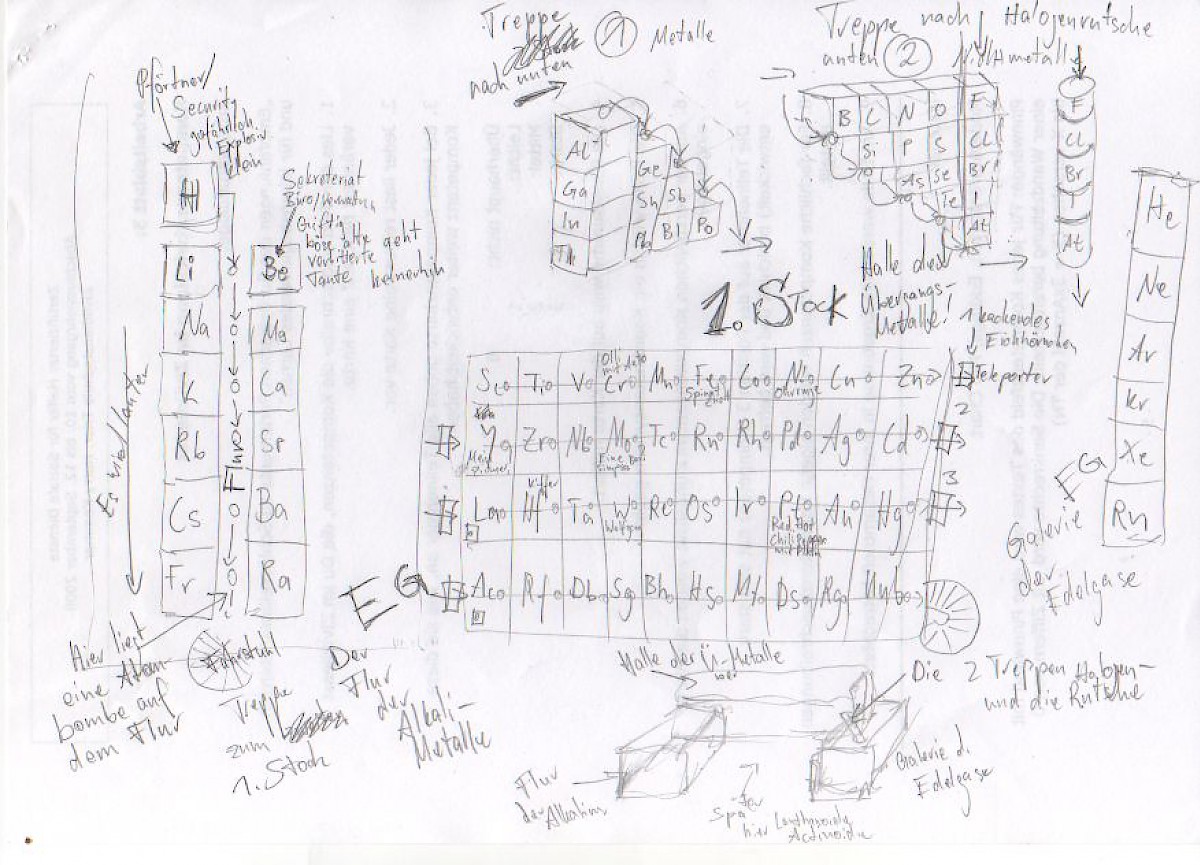 Pförtner/
Security
gefährlich
Explosiv
klein
H
Li
Na
K
Rb
Cs
Fr
Es wird lauter
Flur
Sekreteriat
Giftig
böse alte
verbitterte
Tante
geht
Be
Mg
Ca
Sr
Ba
Ra
Hier liegt
eine Atom-
bombe auf
dem Flur
Fahrstuhl
Treppe
zum
1. Stock
EG
Der
Flur
der
Alkali-
Metalle
Treppe
nach unten
1
Metalle
Al
Ga
In
Ge
Sn
Sb
Pb
Bi
Po
Treppe nach
unten 2
Halogenrutsche
Nichtmetalle
B C N O F
Si P S Cl
As Se Br
Te I
At
F
Cl
Br
I
At
1. Stock
Halle der
Übergangs-
Metalle!
1 kackendes
Eichhörnchen
Teleporter
2
3
Sc Ti V Cr Mn Fe Co Ni Cu Zn
Y Zr Nb Mo Tc Ru Rh Pd Ag Cd
Mein
Zimmer
La Hf Ta W Re Os Ir Pt Au Hg
Red Hot
Chili Peppers
Ac Rf Db Sg Bh Hs Mt Ds Rg Uub
He
Ne
Ar
Kr
Xe
Rn
EG
Galerie
der
Edelgase
Halle der Ü-Metalle
Die 2 Treppen
und die Rutsche
Halogen-
Flur
der Alkalim
Galerie d.
Edelgase
hier Lanthanoide
Actinoide